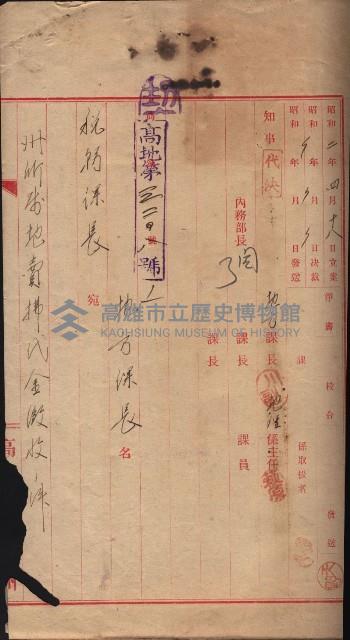 昭和二年四月 日立案
昭和 年 月 日決裁
昭和 年 月 日發送
淨書
校合
發送
課
係取扱者
知事
代決
地方課長
係主任
內務部長
課長
課員
課長
高地第三二〇號ノ一
地方課長名
稅務課長
宛
州所屬地賣拂代金徵收ノ件
高雄市立歷史博物館
KAOHSIUNG MUSEUM OF HISTORY